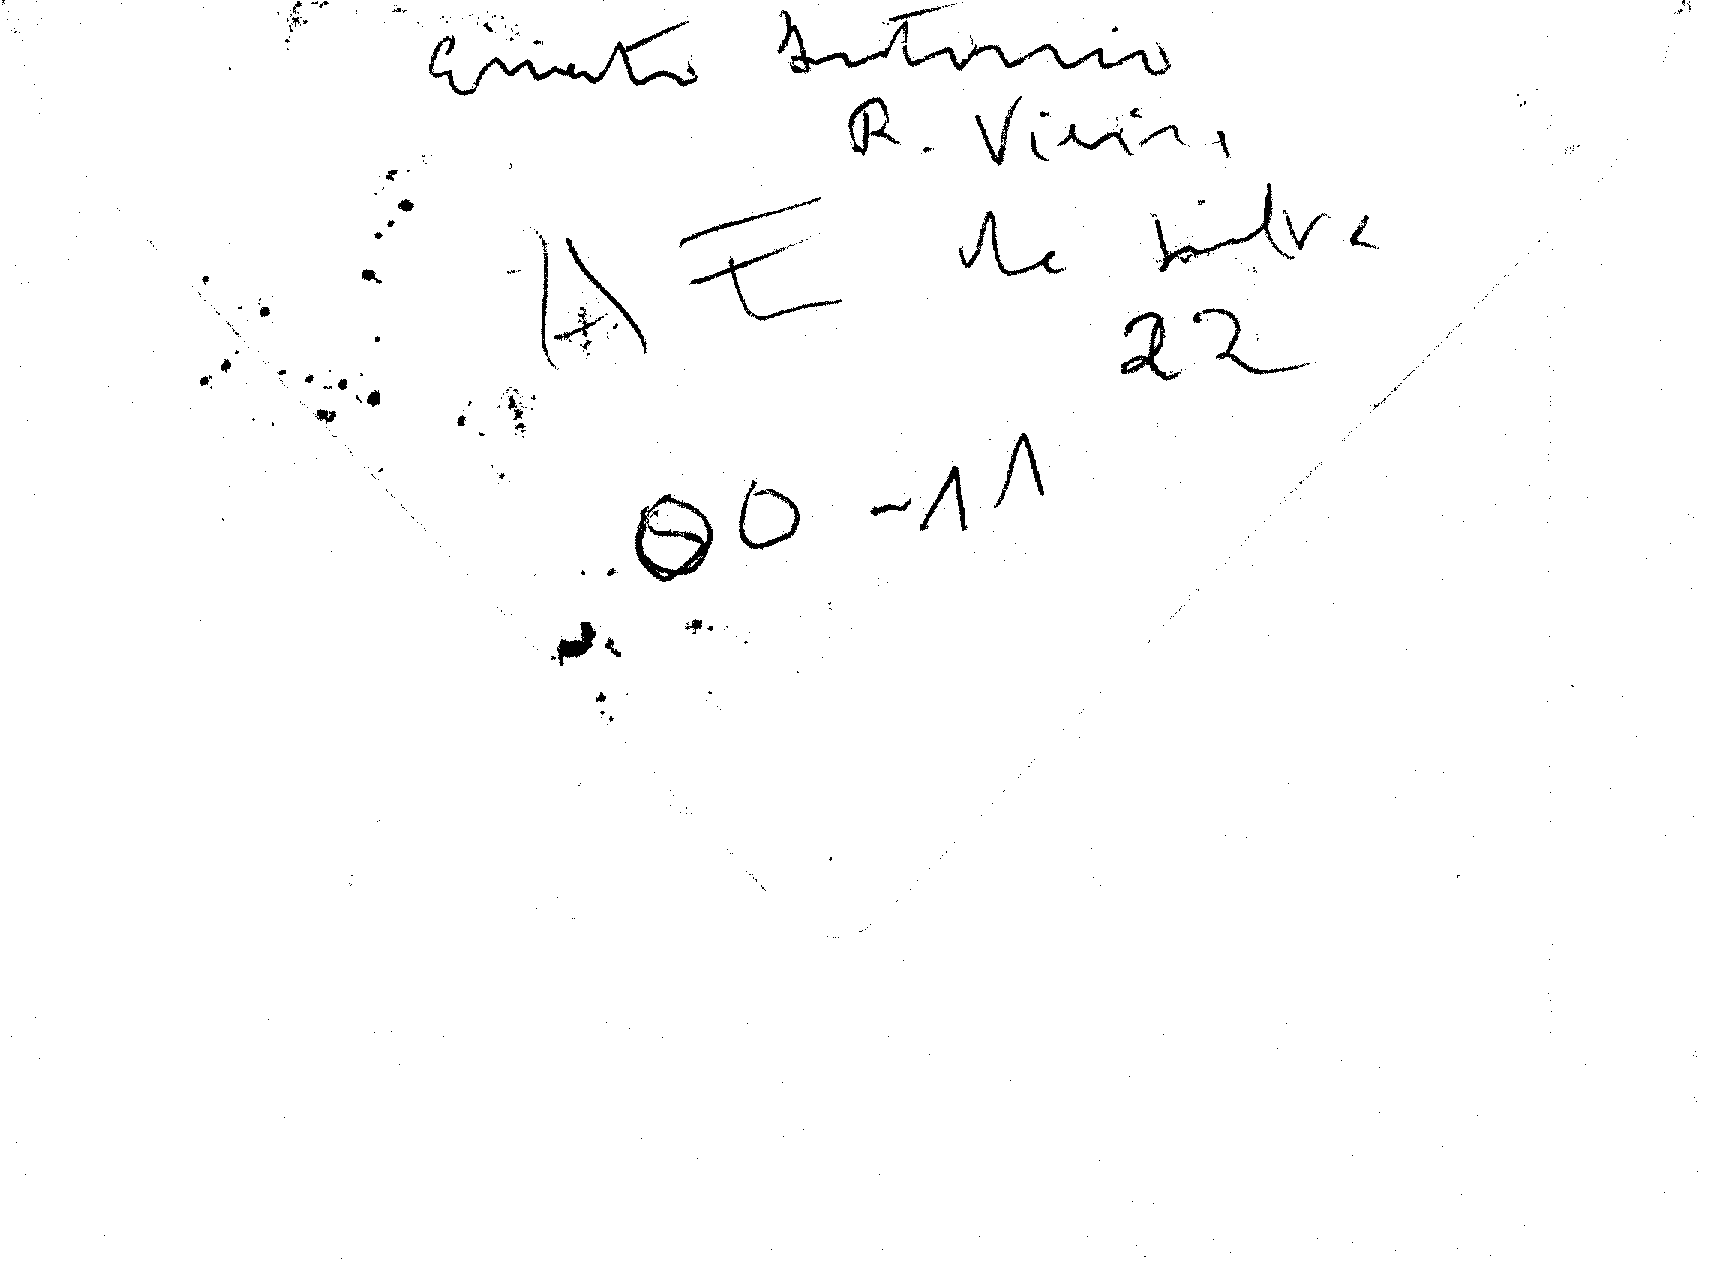 Ernesto Antonio
R. Vieira
AE da Silva
22
00-11